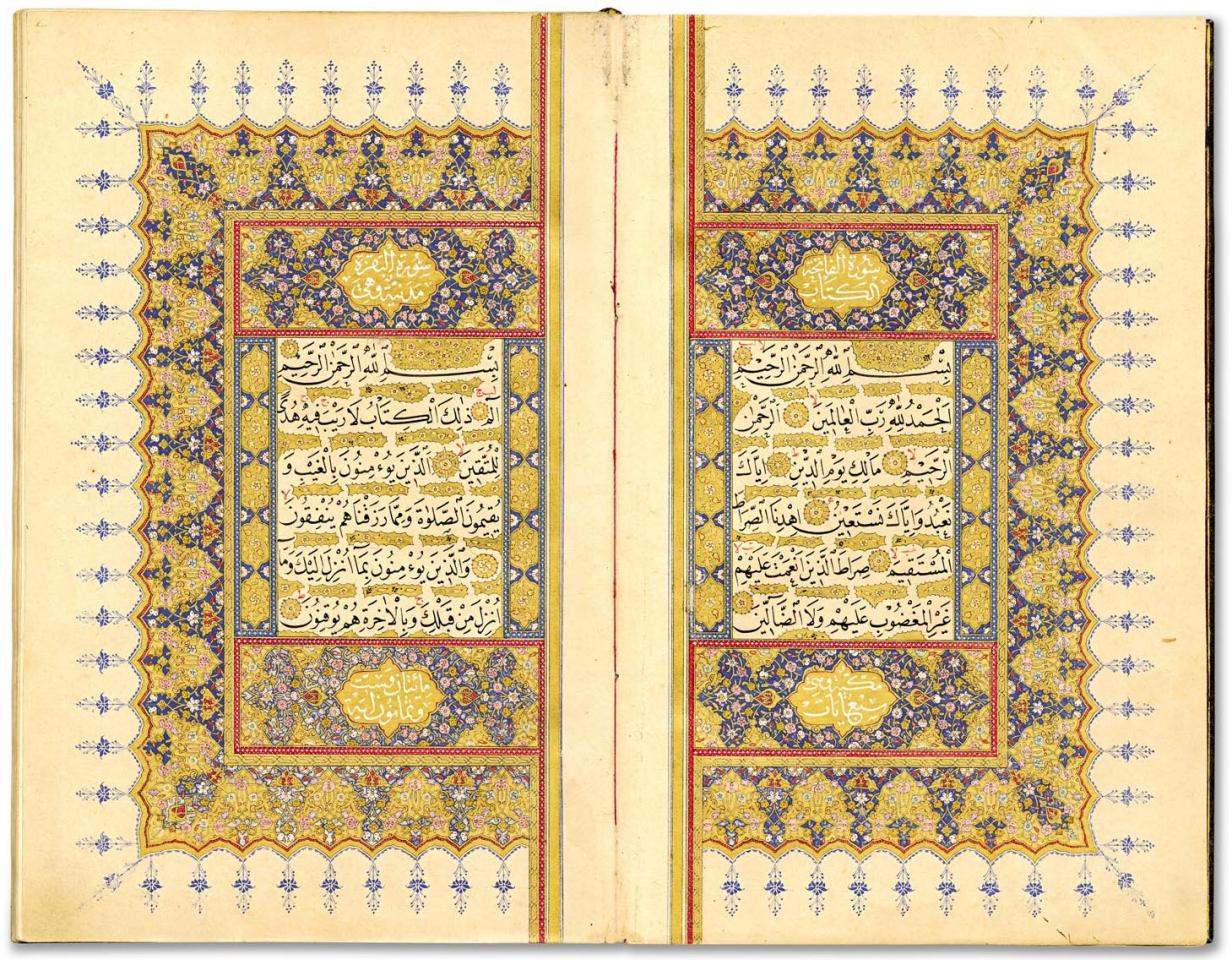 سورة الفاتحة
الكتاب
بِسْمِ اللَّهِ الرَّحْمٰنِ الرَّحِيمِ
اَلْحَمْدُ لِلَّهِ رَبِّ الْعَالَمِينَ الرَّحْمٰنِ
الرَّحِيمِ مَالِكِ يَوْمِ الدِّينِ اِيَّاكَ
نَعْبُدُ وَاِيَّاكَ نَسْتَعِينُ اِهْدِنَا الصِّرَاطَ
الْمُسْتَقِيمَ صِرَاطَ الَّذِينَ اَنْعَمْتَ عَلَيْهِمْ
غَيْرِ الْمَغْضُوبِ عَلَيْهِمْ وَلَا الضَّالِّينَ
مكية وهى
سبع ايات
سورة البقرة
مدنية وهى
بِسْمِ اللَّهِ الرَّحْمٰنِ الرَّحِيمِ
الٓمٓ ذٰلِكَ الْكِتَابُ لَا رَيْبَ فِيهِ هُدًى
لِلْمُتَّقِينَ اَلَّذِينَ يُؤْمِنُونَ بِالْغَيْبِ وَ
يُقِيمُونَ الصَّلٰوةَ وَمِمَّا رَزَقْنَاهُمْ يُنْفِقُونَ
وَالَّذِينَ يُؤْمِنُونَ بِمَٓا اُنْزِلَ اِلَيْكَ وَمَٓا
اُنْزِلَ مِنْ قَبْلِكَ وَبِالْاٰخِرَةِ هُمْ يُوقِنُونَ
مائتان وست
وثمانون اية